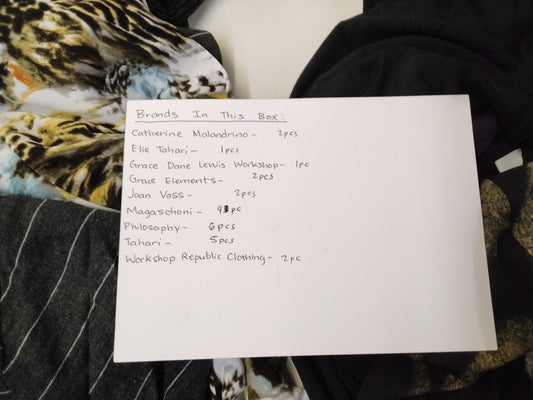 Brands In This Box:
Catherine Malandrino - 2pcs
Elie Tahari - 1pcs
Grace Dane Lewis Workshop - 1pc
Grace Elements - 2pcs
Joan Vass - 2pcs
Magaschoni - 4 pc
Philosophy - 6pcs
Tahari - 5pcs
Workshop Republic Clothing - 2pc